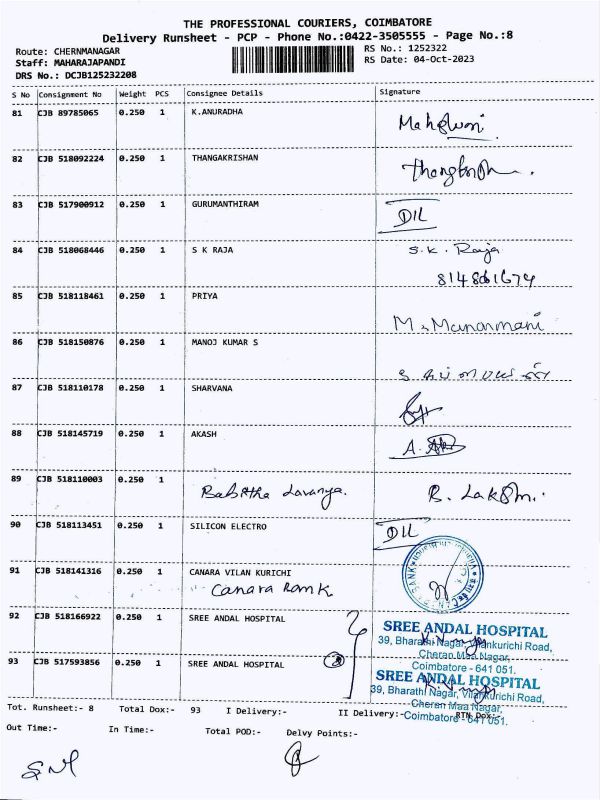 THE PROFESSIONAL COURIERS, COIMBATORE
Delivery Runsheet - PCP - Phone No.:0422-3505555 - Page No.:8
Route: CHERNMANAGAR RS No.: 1252322
Staff: MAHARAJAPANDI RS Date: 04-Oct-2023
DRS No.: DCJB125232208
S No Consignment No Weight PCS Consignee Details Signature
81 CJB 89785065 0.250 1 K.ANURADHA
82 CJB 518092224 0.250 1 THANGAKRISHAN
83 CJB 517900912 0.250 1 GURUMANTHIRAM
DIL
84 CJB 518068446 0.250 1 S K RAJA S.K. Raja
85 CJB 518118461 0.250 1 PRIYA
86 CJB 518150876 0.250 1 MANOJ KUMAR S
87 CJB 518110178 0.250 1 SHARVANA
88 CJB 518145719 0.250 1 AKASH
89 CJB 518110003 0.250 1 Babitha Lavanya. B. Lakshmi.
90 CJB 518113451 0.250 1 SILICON ELECTRO DIL
91 CJB 518141316 0.250 1 CANARA VILAN KURICHI
Canara Bank
92 CJB 518166922 0.250 1 SREE ANDAL HOSPITAL
SREE ANDAL HOSPITAL
39, Bharathi Nagar, Vilankurichi Road,
Cheran Maa Nagar,
Coimbatore - 641 051.
93 CJB 517593856 0.250 1 SREE ANDAL HOSPITAL
SREE ANDAL HOSPITAL
39, Bharathi Nagar, Vilankurichi Road,
Cheran Maa Nagar,
Coimbatore - 641 051.
Tot. Runsheet:- 8 Total Dox:- 93 I Delivery:- II Delivery:- RTN Dox:-
Out Time:- In Time:- Total POD:- Delvy Points:-